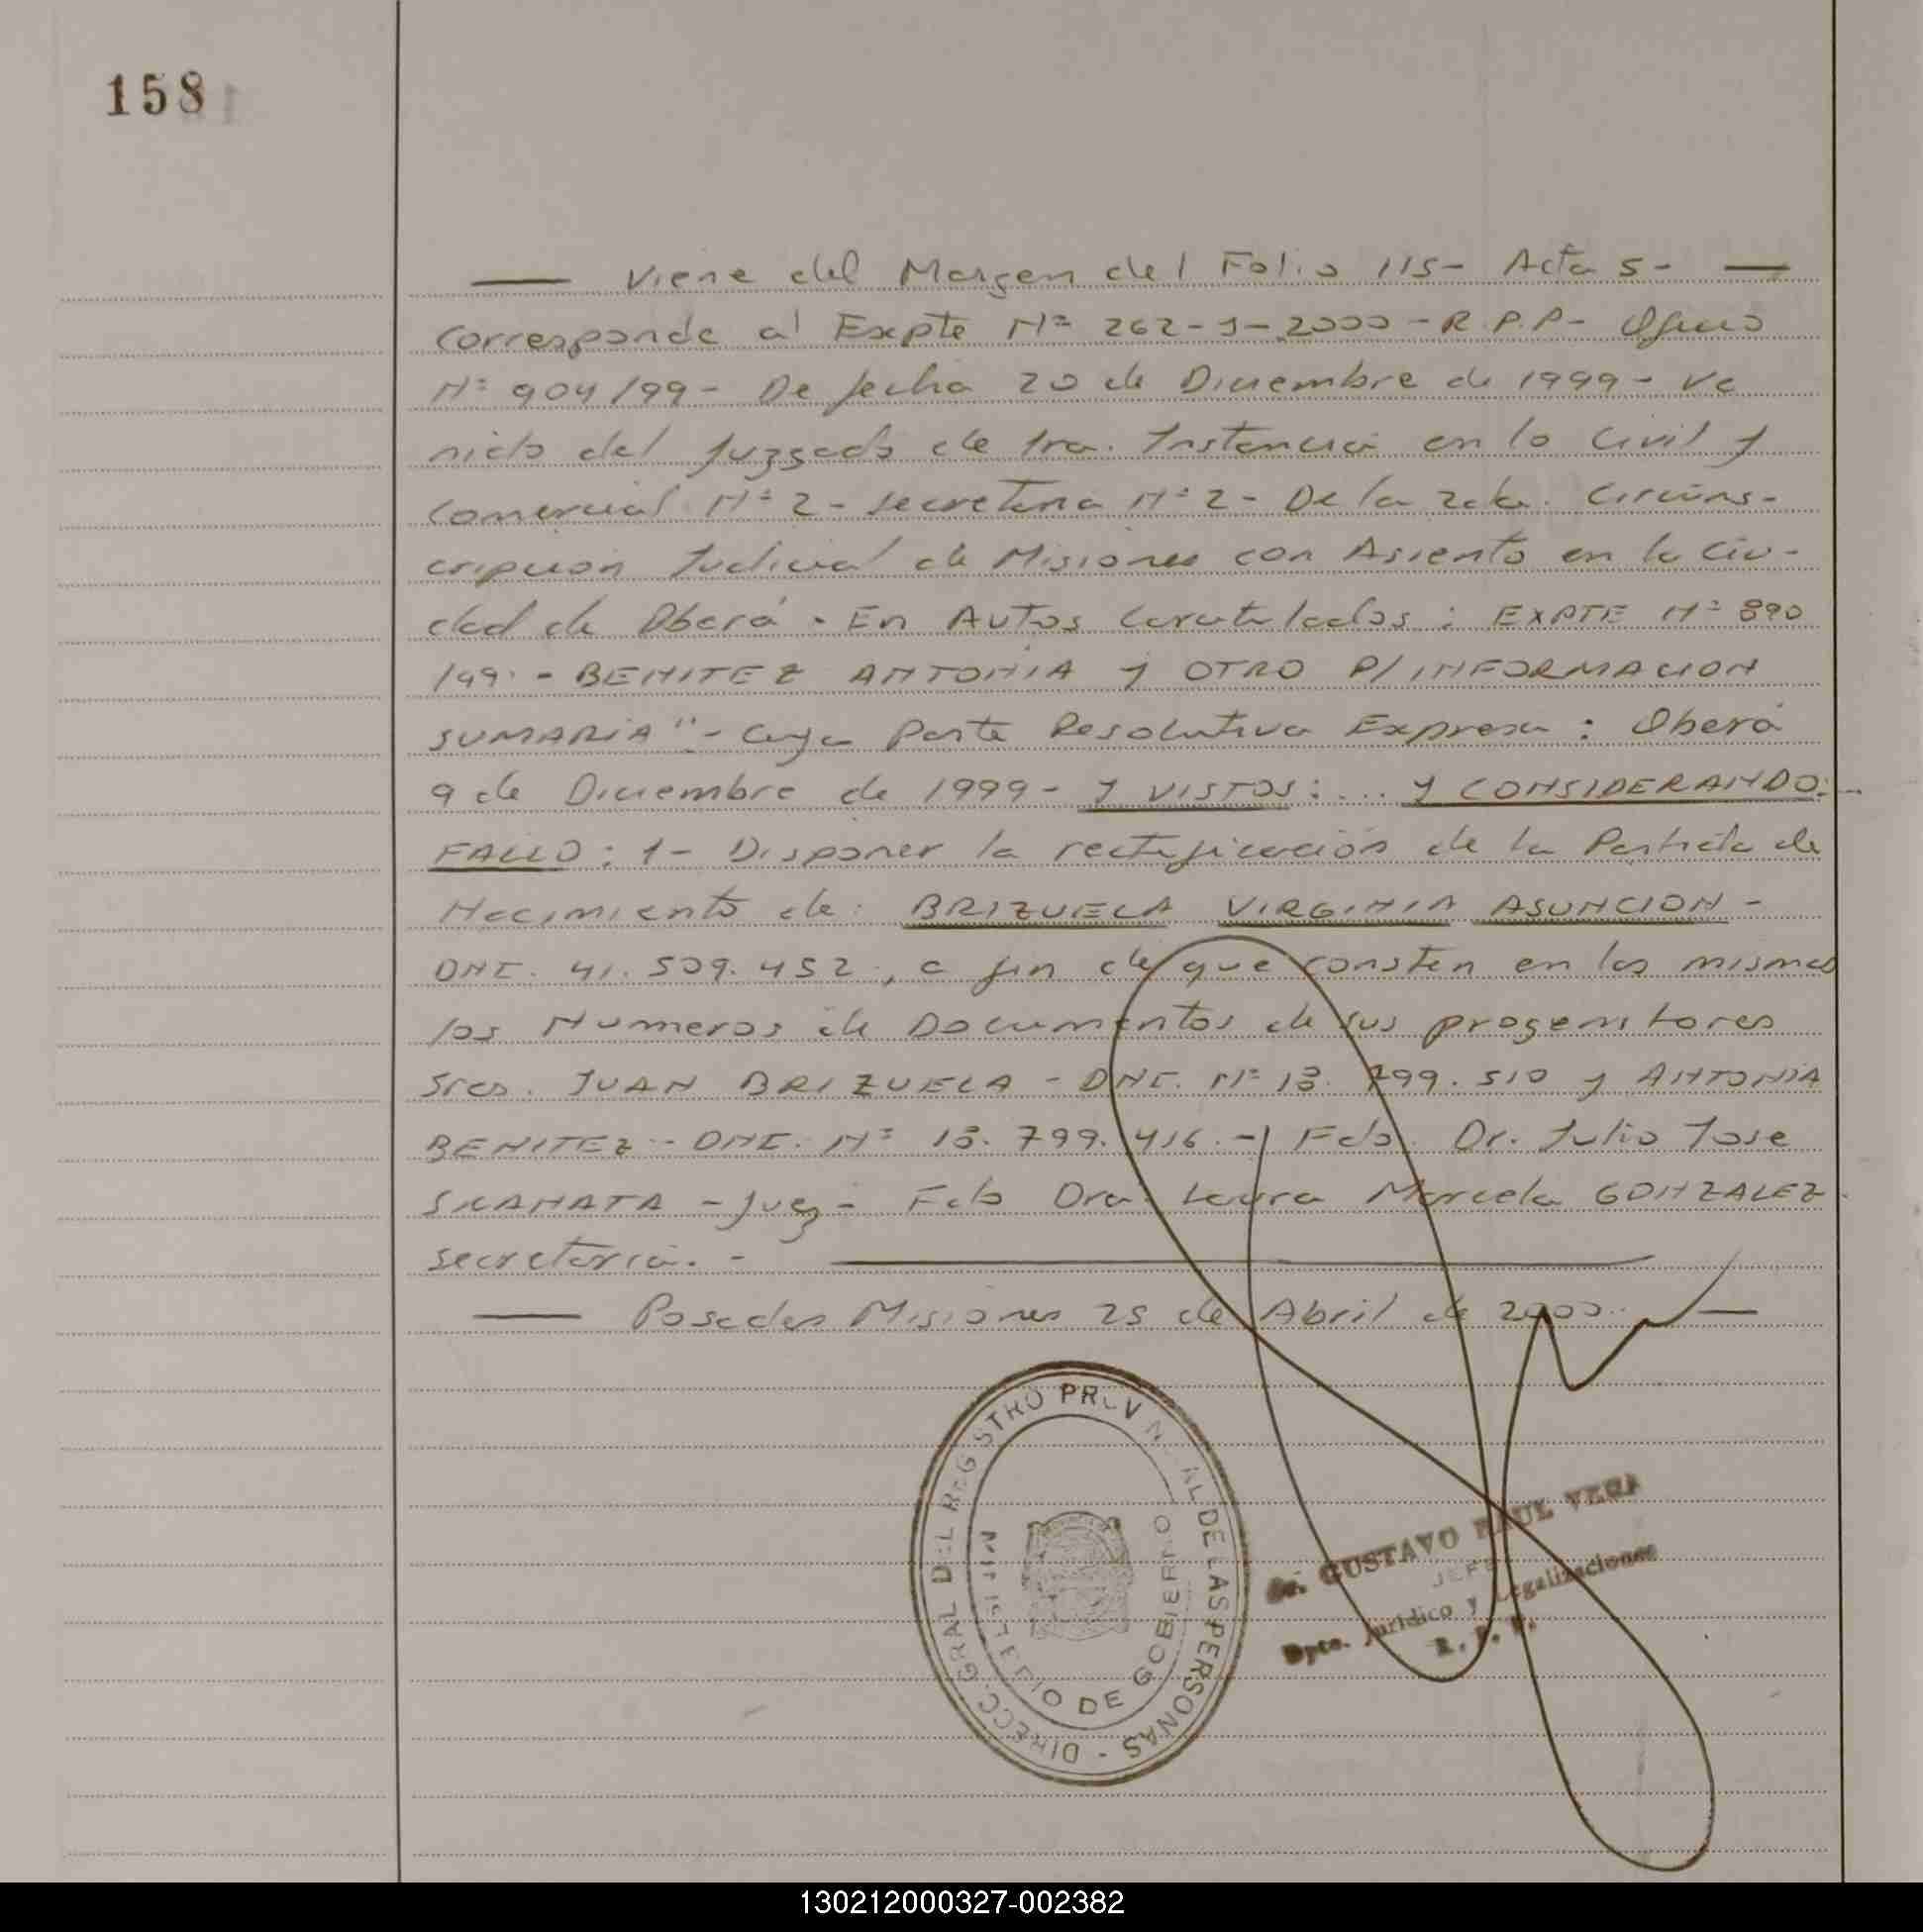 158
Viene del Margen del Folio 115- Acta 5-
corresponde al Expte Nº 262-J-2000-R.P.P- Oficio
Nº 904/99- De fecha 20 de Diciembre de 1999- Ve
nido del Juzgado de 1ra. Instancia en lo Civil y
Comercial Nº 2- Secretaria Nº 2- De la 2da. Circuns-
cripcion Judicial de Misiones con Asiento en la Ciu-
dad de Oberá. En Autos Caratulados: EXPTE Nº 890
/99.- BENITEZ ANTONIA Y OTRO P/INFORMACION
SUMARIA"- Cuya Parte Resolutiva Expresa: Oberá
9 de Diciembre de 1999- Y VISTOS:... Y CONSIDERANDO:...
FALLO: 1- Disponer la rectificación de la Partida de
Nacimiento de: BRIZUELA VIRGINIA ASUNCION-
DNI. 41.509.452, a fin de que consten en los mismos
los Numeros de Documentos de sus progenitores
Sres. JUAN BRIZUELA - DNI. Nº 13.799.510 y ANTONIA
BENITEZ- DNI. Nº 13.799.416.- Fdo. Dr. Julio Jose
SKANATA - Juez- Fdo Dra. Laura Marcela GONZALEZ.
secretaria.-
Posadas Misiones 25 de Abril de 2000.
DIRECC. GRAL DEL REGISTRO PROVINCIAL DE LAS PERSONAS -
MINISTERIO DE GOBIERNO
Sr. GUSTAVO RAUL VERA
JEFE
Dpto. Jurídico y Legalizaciones
R. P. P.
130212000327-002382